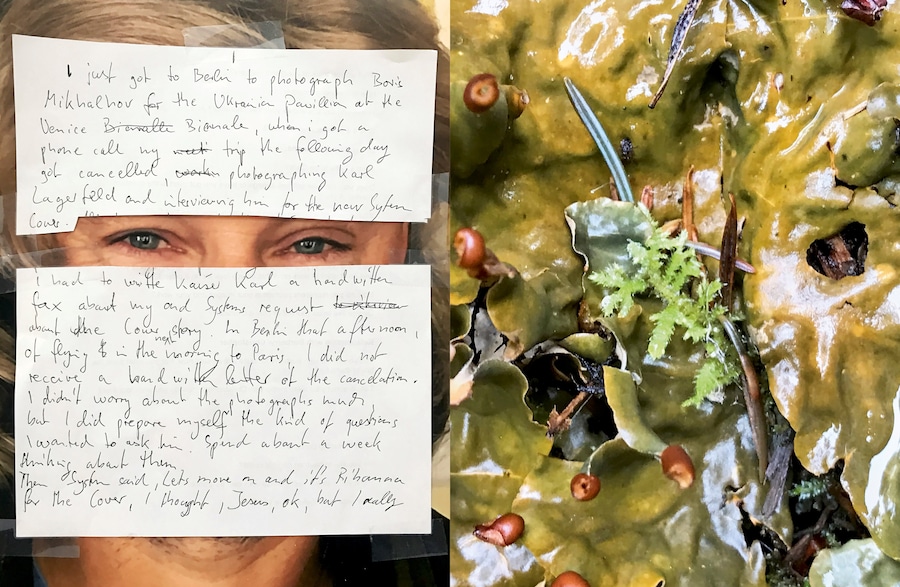 I just got to Berlin to photograph Boris
Mikhailov for the Ukrainian Pavillion at the
Venice Bianalle Bianale, when i got a
phone call my trip the following day
got cancelled, photographing Karl
Lagerfeld and interviewing him for the new System
Cover.
i had to write Kaiser Karl a handwritten
fax about my and Systems request
about the Cover story. In Berlin that afternoon,
of flying in the next morning to Paris, I did not
receive a handwritten letter of the cancelation.
I didn't worry about the photographs much
but I did prepare myself the kind of questions
I wanted to ask him. Spend about a week
thinking about them.
Then System said, Lets move on and it's Rihanna
for the Cover, I thought, Jesus, ok, but I really